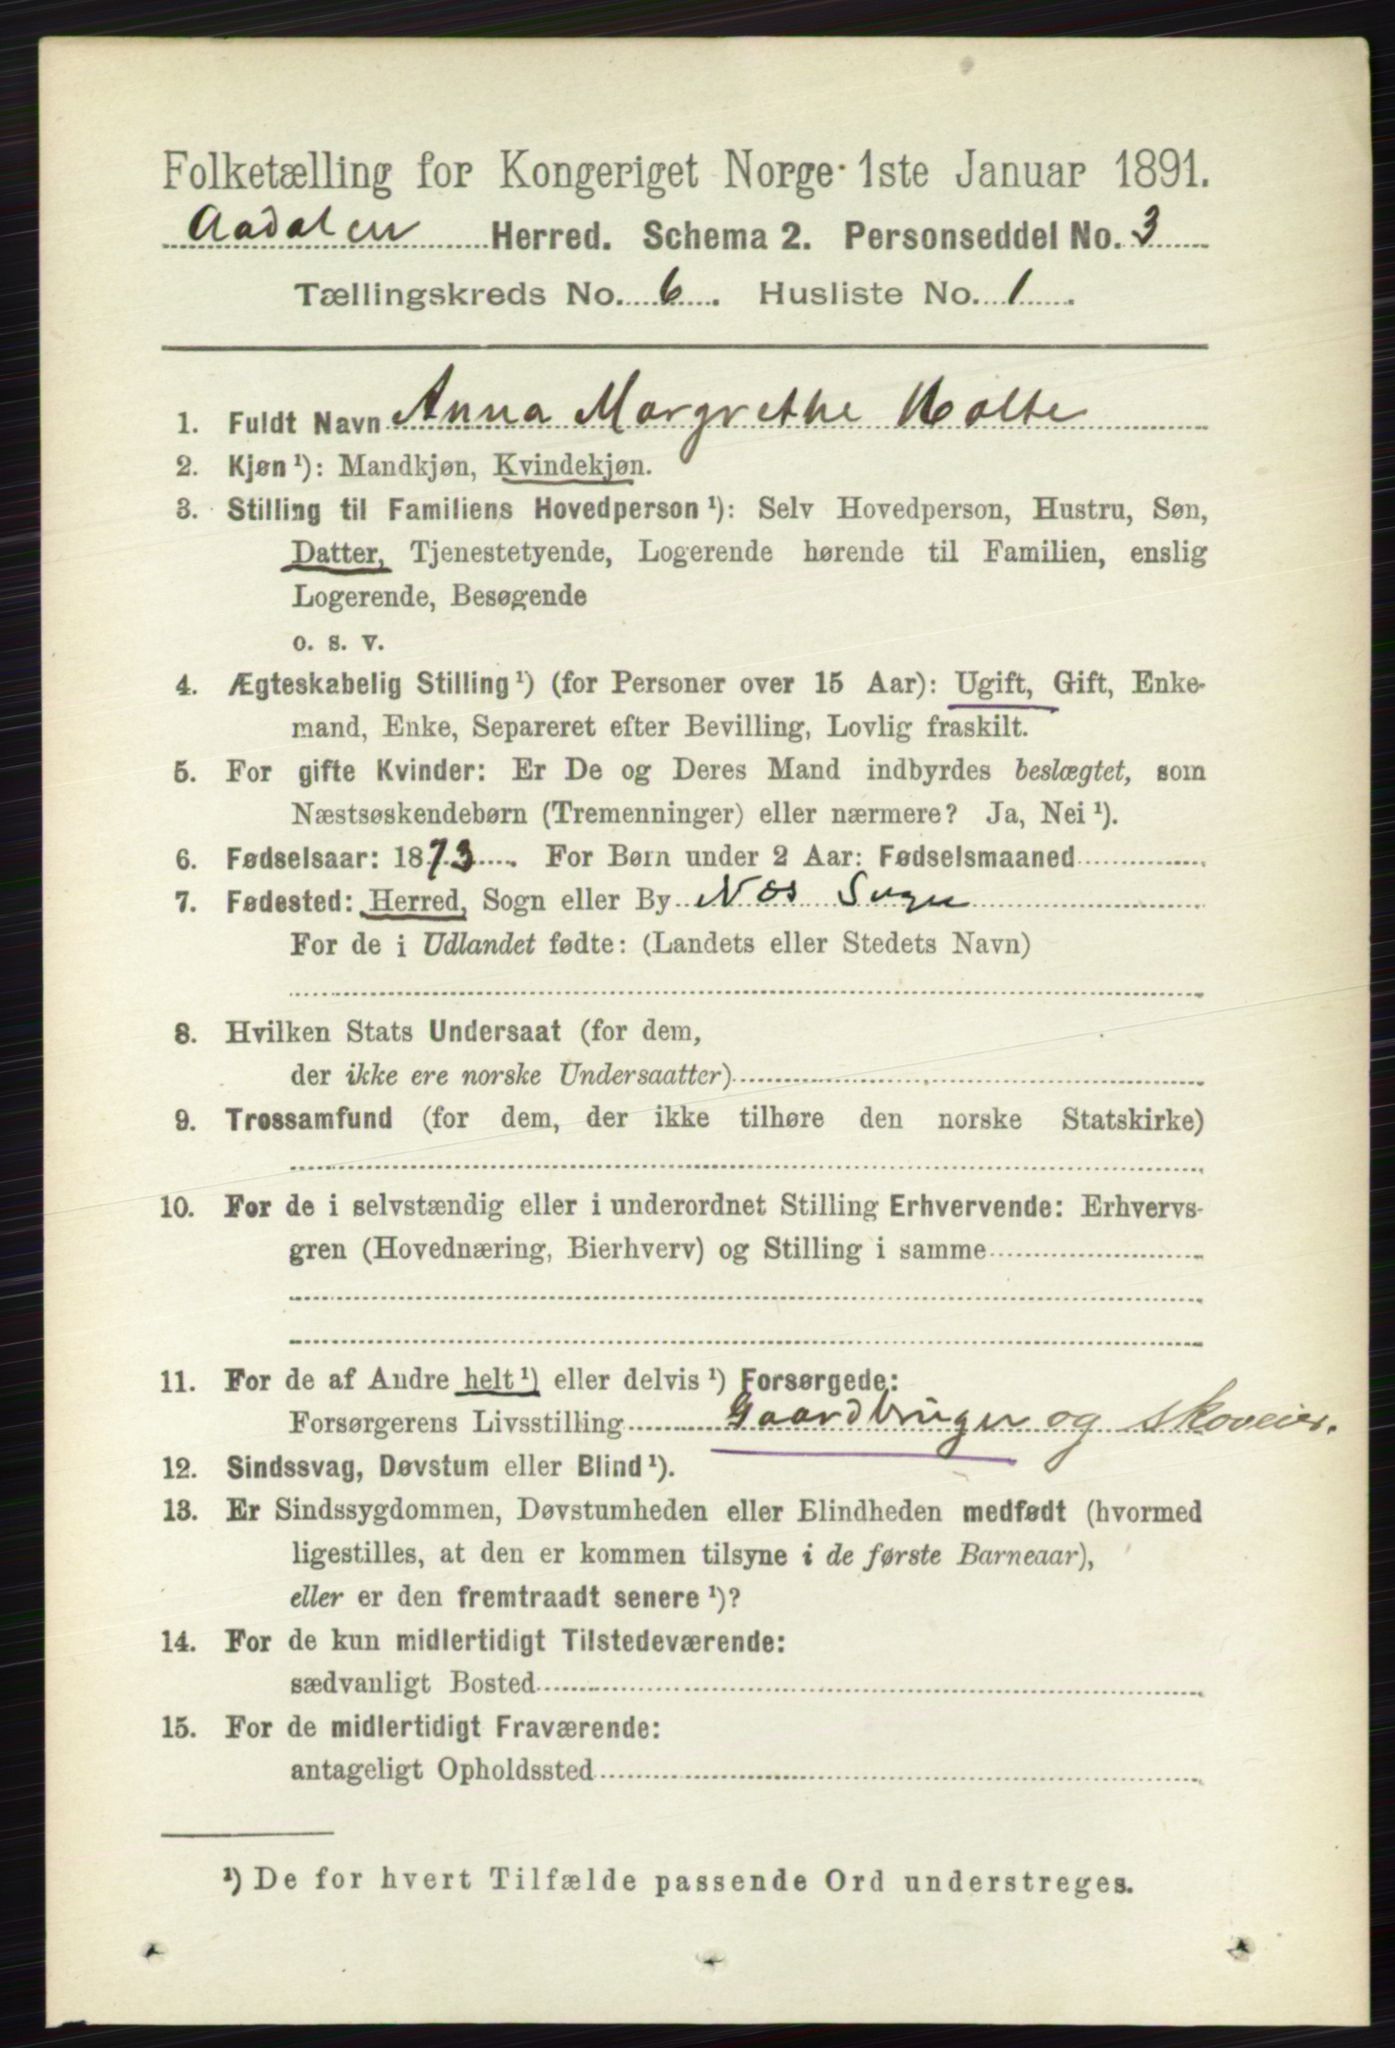 Folketælling for Kongeriget Norge 1ste Januar 1891.
Aadalen Herred. Schema 2. Personseddel No. 3
Tællingskreds No. 6. Husliste No. 1.
1. Fuldt Navn Anna Margrethe Holte
2. Kjøn ¹): Mandkjøn, Kvindekjøn.
3. Stilling til Familiens Hovedperson ¹): Selv Hovedperson, Hustru, Søn,
Datter, Tjenestetyende, Logerende hørende til Familien, enslig
Logerende, Besøgende
o. s. v.
4. Ægteskabelig Stilling ¹) (for Personer over 15 Aar): Ugift, Gift, Enke-
mand, Enke, Separeret efter Bevilling, Lovlig fraskilt.
5. For gifte Kvinder: Er De og Deres Mand indbyrdes beslægtet, som
Næstsøskendebørn (Tremenninger) eller nærmere? Ja, Nei ¹).
6. Fødselsaar: 1873. For Børn under 2 Aar: Fødselsmaaned
7. Fødested: Herred, Sogn eller By Næs Sogn
For de i Udlandet fødte: (Landets eller Stedets Navn)
8. Hvilken Stats Undersaat (for dem,
der ikke ere norske Undersaatter)
9. Trossamfund (for dem, der ikke tilhøre den norske Statskirke)
10. For de i selvstændig eller i underordnet Stilling Erhvervende: Erhvervs-
gren (Hovednæring, Bierhverv) og Stilling i samme
11. For de af Andre helt ¹) eller delvis ¹) Forsørgede:
Forsørgerens Livsstilling Gaardbruger og Skoveier.
12. Sindssvag, Døvstum eller Blind ¹).
13. Er Sindssygdommen, Døvstumheden eller Blindheden medfødt (hvormed
ligestilles, at den er kommen tilsyne i de første Barneaar),
eller er den fremtraadt senere ¹)?
14. For de kun midlertidigt Tilstedeværende:
sædvanligt Bosted
15. For de midlertidigt Fraværende:
antageligt Opholdssted
¹) De for hvert Tilfælde passende Ord understreges.